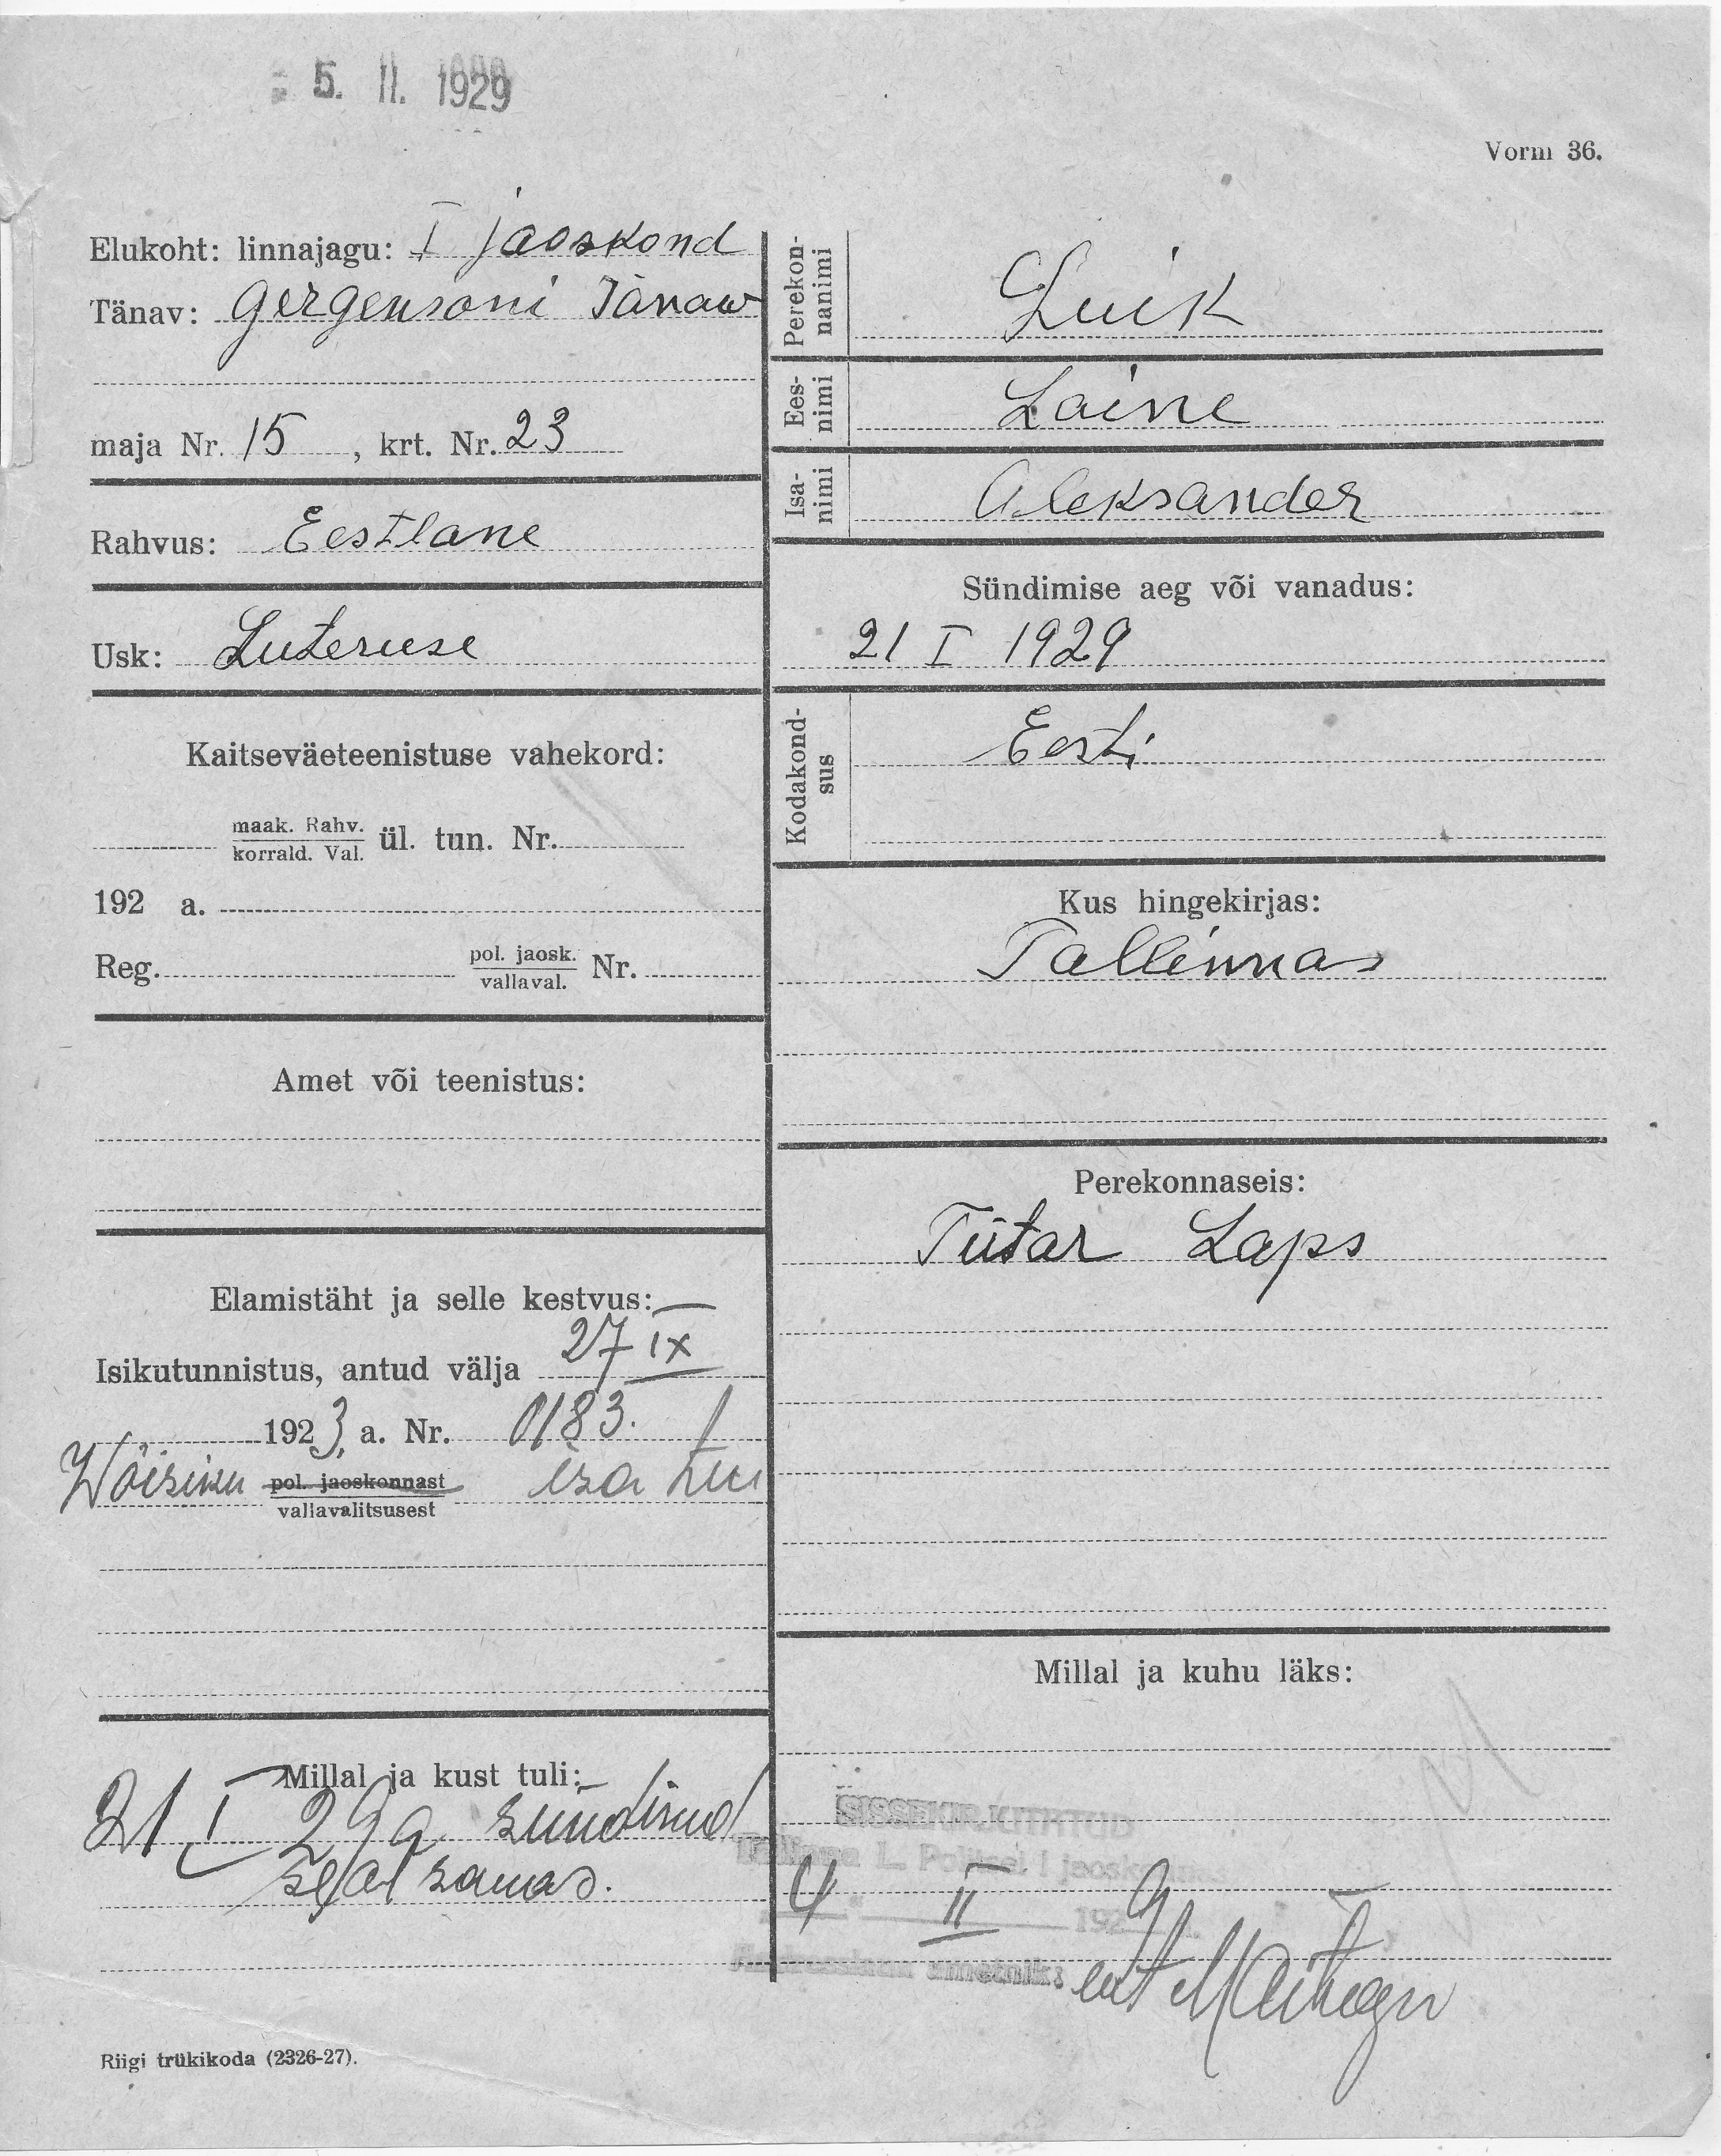 5. II. 1929
Vorm 36.
Elukoht: linnajagu: I jaoskond
Tänav: Gergensoni Tänaw
maja Nr. 15, krt. Nr. 23
Rahvus: Eestlane
Usk: Luteruse
Kaitseväeteenistuse vahekord:
maak. Rahv.
korrald. Val. ül. tun. Nr.
192 a.
Reg. pol. jaosk.
vallaval. Nr.
Amet või teenistus:
Elamistäht ja selle kestvus: —
Isikutunnistus, antud välja 27 IX
1923, a. Nr. 0183.
Wõisiku pol. jaoskonnast isa tun
vallavalitsusest
Millal ja kust tuli:
21 I 29 a sündinud
seal samas.
Riigi trükikoda (2326-27).
Perekon-
nanimi
Luik
Ees-
nimi
Laine
Isa-
nimi
Aleksander
Sündimise aeg või vanadus:
21 I 1929
Kodakond-
sus
Eesti
Kus hingekirjas:
Tallinnas
Perekonnaseis:
Tütar Laps
Millal ja kuhu läks:
SISSEKIRJUTATUD
Tallinna L. Politsei I jaoskonnas
4 II 1929
ametnik: